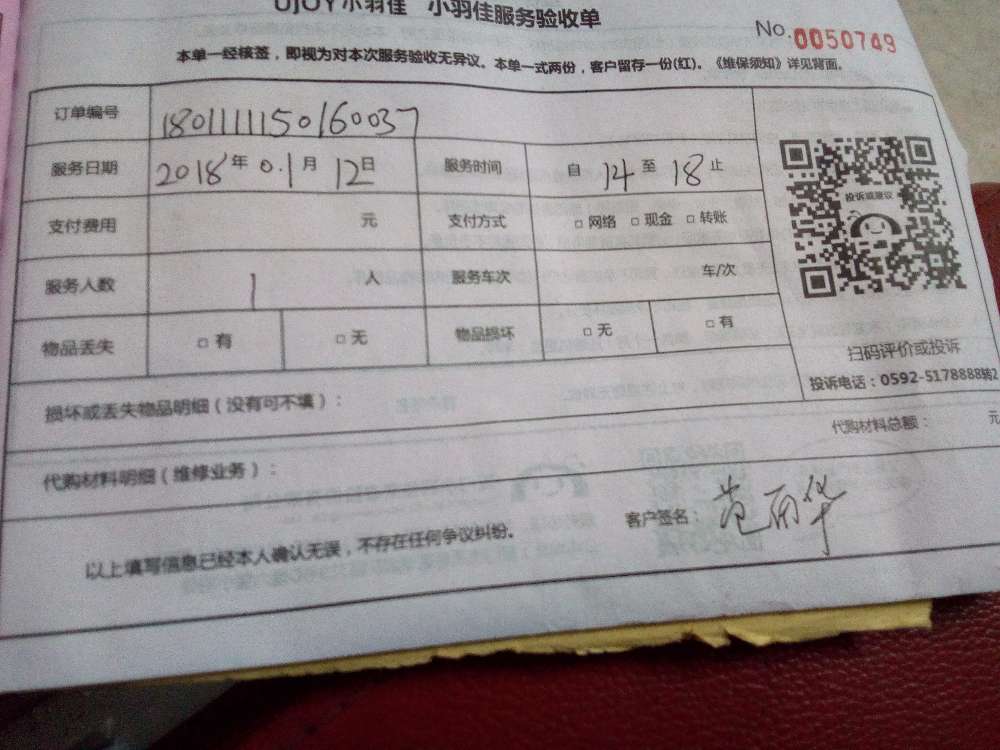 UjOY小羽佳 小羽佳服务验收单
No.0050749
本单一经核签，即视为对本次服务验收无异议。本单一式两份，客户留存一份(红)。《维保须知》详见背面。
订单编号 1801111150160037
服务日期 2018年01月12日 服务时间 自14至18止
支付费用 元 支付方式 □网络 □现金 □转账
服务人数 1人 服务车次 车/次
物品丢失 □有 □无 物品损坏 □无 □有
投诉或建议
扫码评价或投诉
投诉电话：0592-5178888转2
损坏或丢失物品明细（没有可不填）：
代购材料明细（维修业务）： 代购材料总额： 元
以上填写信息已经本人确认无误，不存在任何争议纠纷。 客户签名：范丽华